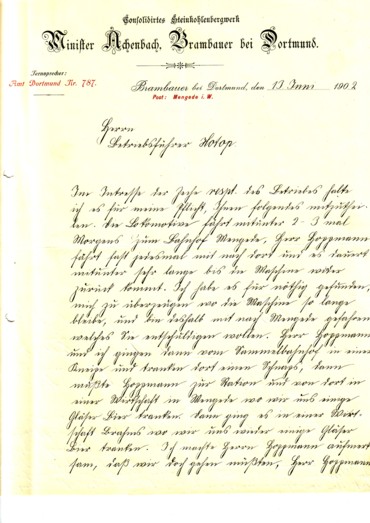 Consolidirtes Steinkohlenbergwerk
Minister Achenbach, Brambauer bei Dortmund.
Fernsprecher:
Amt Dortmund Nr. 787.
Brambauer bei Dortmund, den 13 Juni 1902
Post: Mengede i. W.
Herrn
Betriebsführer Hotop
Im Interesse der Zeche respt. des Betriebes halte
ich es für meine Pflicht, Ihnen folgendes mitzuthei-
len. Die Lokomotive fährt mitunter 2-3 mal
Morgens zum Bahnhof Mengede, Herr Hoppmann
fährt fast jedesmal mit nach dort und es dauert
mitunter sehr lange bis die Maschine wieder
zurück kommt. Ich habe es für nöthig gefunden,
mich zu überzeugen wo die Maschine so lange
bleibe, und bin deshalb mit nach Mengede gefahren
welches Sie entschuldigen wollen. Herr Hoppmann
und ich gingen dann vom Sammelbahnhof in eine
Kneipe und tranken dort einen Schnaps, dann
mußte Hoppmann zur Station und von dort in
einer Wirtschaft in Mengede wo wir uns einige
Gläser Bier tranken. Dann ging es in einer Wirt-
schaft Brahms wo wir uns wieder einige Gläser
Bier tranken. Ich machte Herrn Hoppmann aufmerk
sam, daß wir doch gehen müßten, Herr Hoppmann